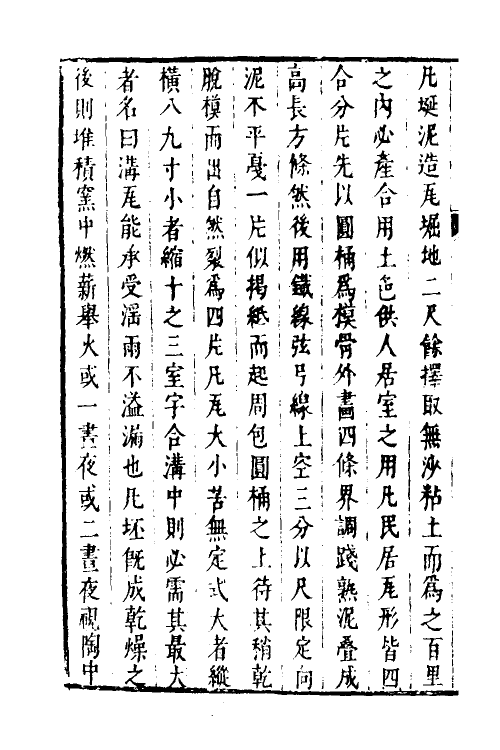 凡埏泥造瓦堀地二尺餘擇取無沙粘土而爲之百里
之內必產合用土色供人居室之用凡民居瓦形皆四
合分片先以圓桶爲模骨外畫四條界調踐熟泥疊成
高長方條然後用鐵線弦弓線上空三分以尺限定向
泥不平戞一片似揭紙而起周包圓桶之上待其稍乾
脫模而出自然裂爲四片凡瓦大小苦無定式大者縱
橫八九寸小者縮十之三室字合溝中則必需其最大
者名曰溝瓦能承受滛雨不溢漏也凡坯旣成乾燥之
後則堆積窯中燃薪舉火或一晝夜或二晝夜視陶中